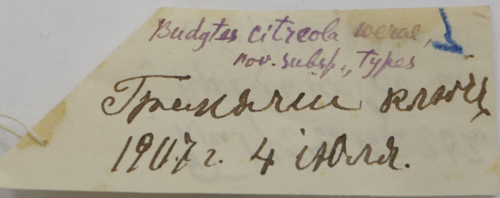 Budytes citreola werae,
nov. subsp., Types
ключ
1907 г. 4 июля.